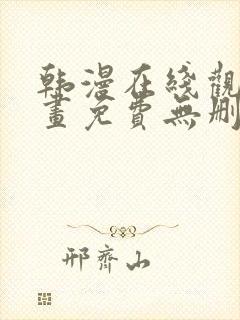 韩漫在线觀
畫免費無刪
邢齊山